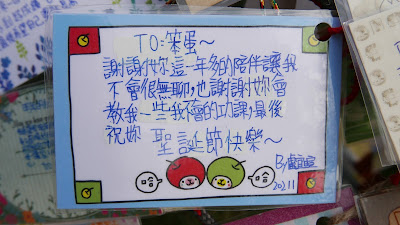 TO:笨蛋~
謝謝妳這一年多的陪伴讓我
不會很無聊,也謝謝妳會
教我一些我不會的功課,最後
祝妳 聖誕節快樂~
哈 哈
By
2021